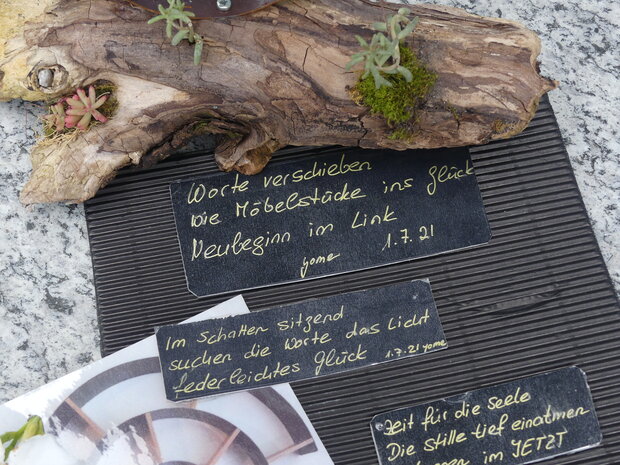 Worte verschieben
wie Möbelstücke ins Glück
Neubeginn im Link
1.7.21
yome
Im Schatten sitzend
suchen die Worte das Licht
federleichtes Glück 1.7.21 yome
Zeit für die Seele
Die Stille tief einatmen
im JETZT